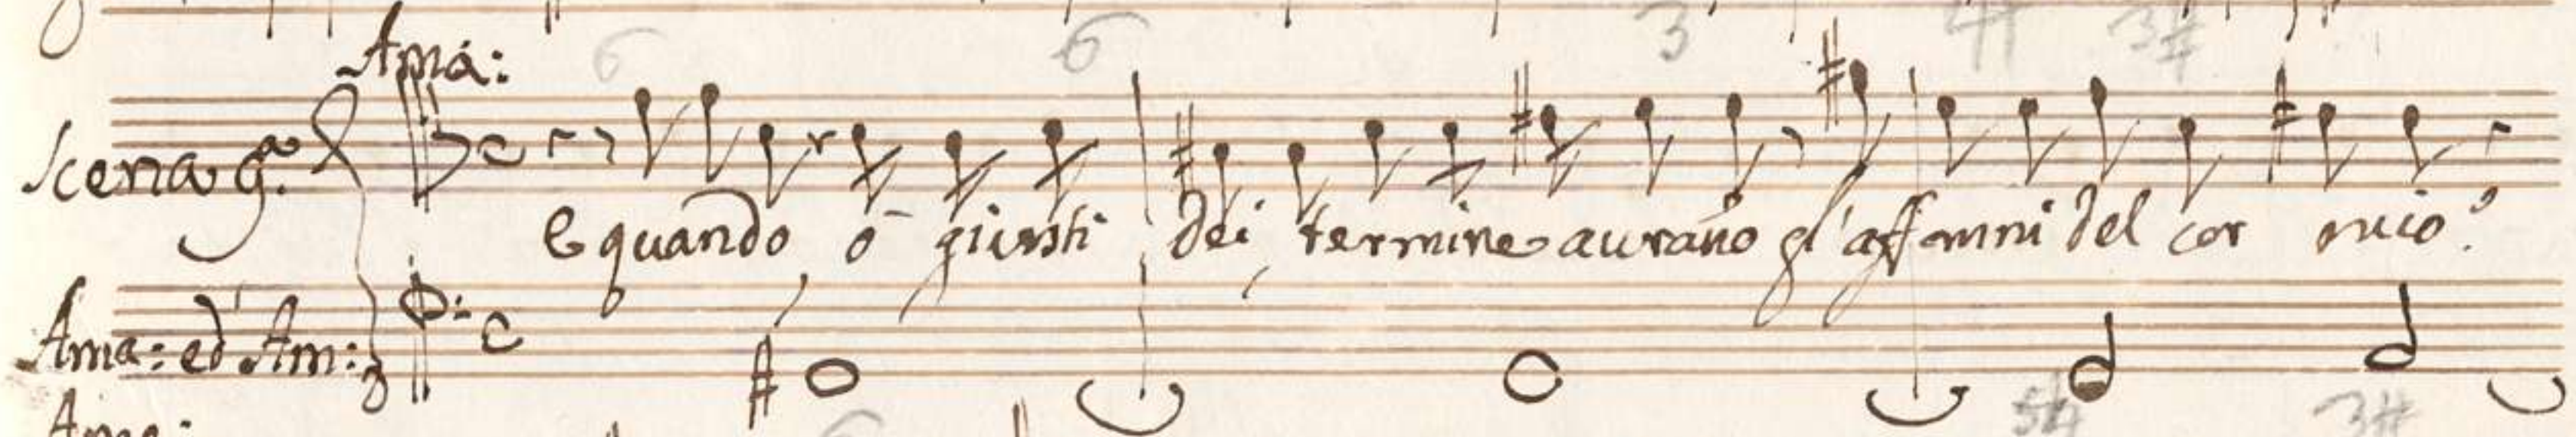 Ama:
6 6 3 4# 3#
Scena 9.ª
e quando ò giusti dei termine aurano gl'affanni del cor mio?
Ama: ed Am:
5# 3#
6
Ama: